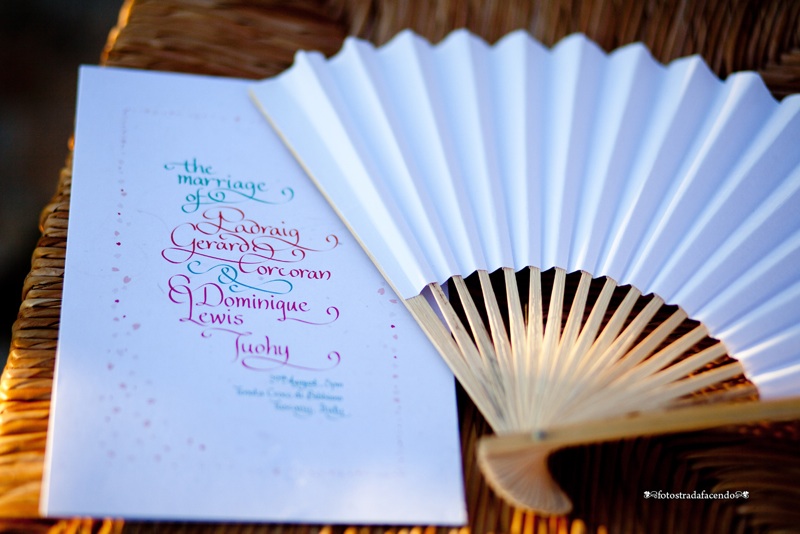 the
marriage
of
Padraig
Gerard
Corcoran
&
Dominique
Lewis
Tuohy
Tuscany, Italy
fotostradafacendo